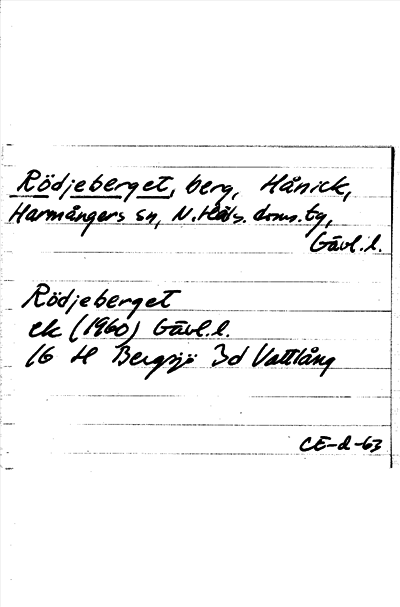 Rödjeberget, berg, Hånick,
Harmångers sn, N. Häls. doms. tg,
Gävl. l.
Rödjeberget
ek (1960) Gävl. l.
16 H Bergsjö 3d Vattlång
CE-d-63